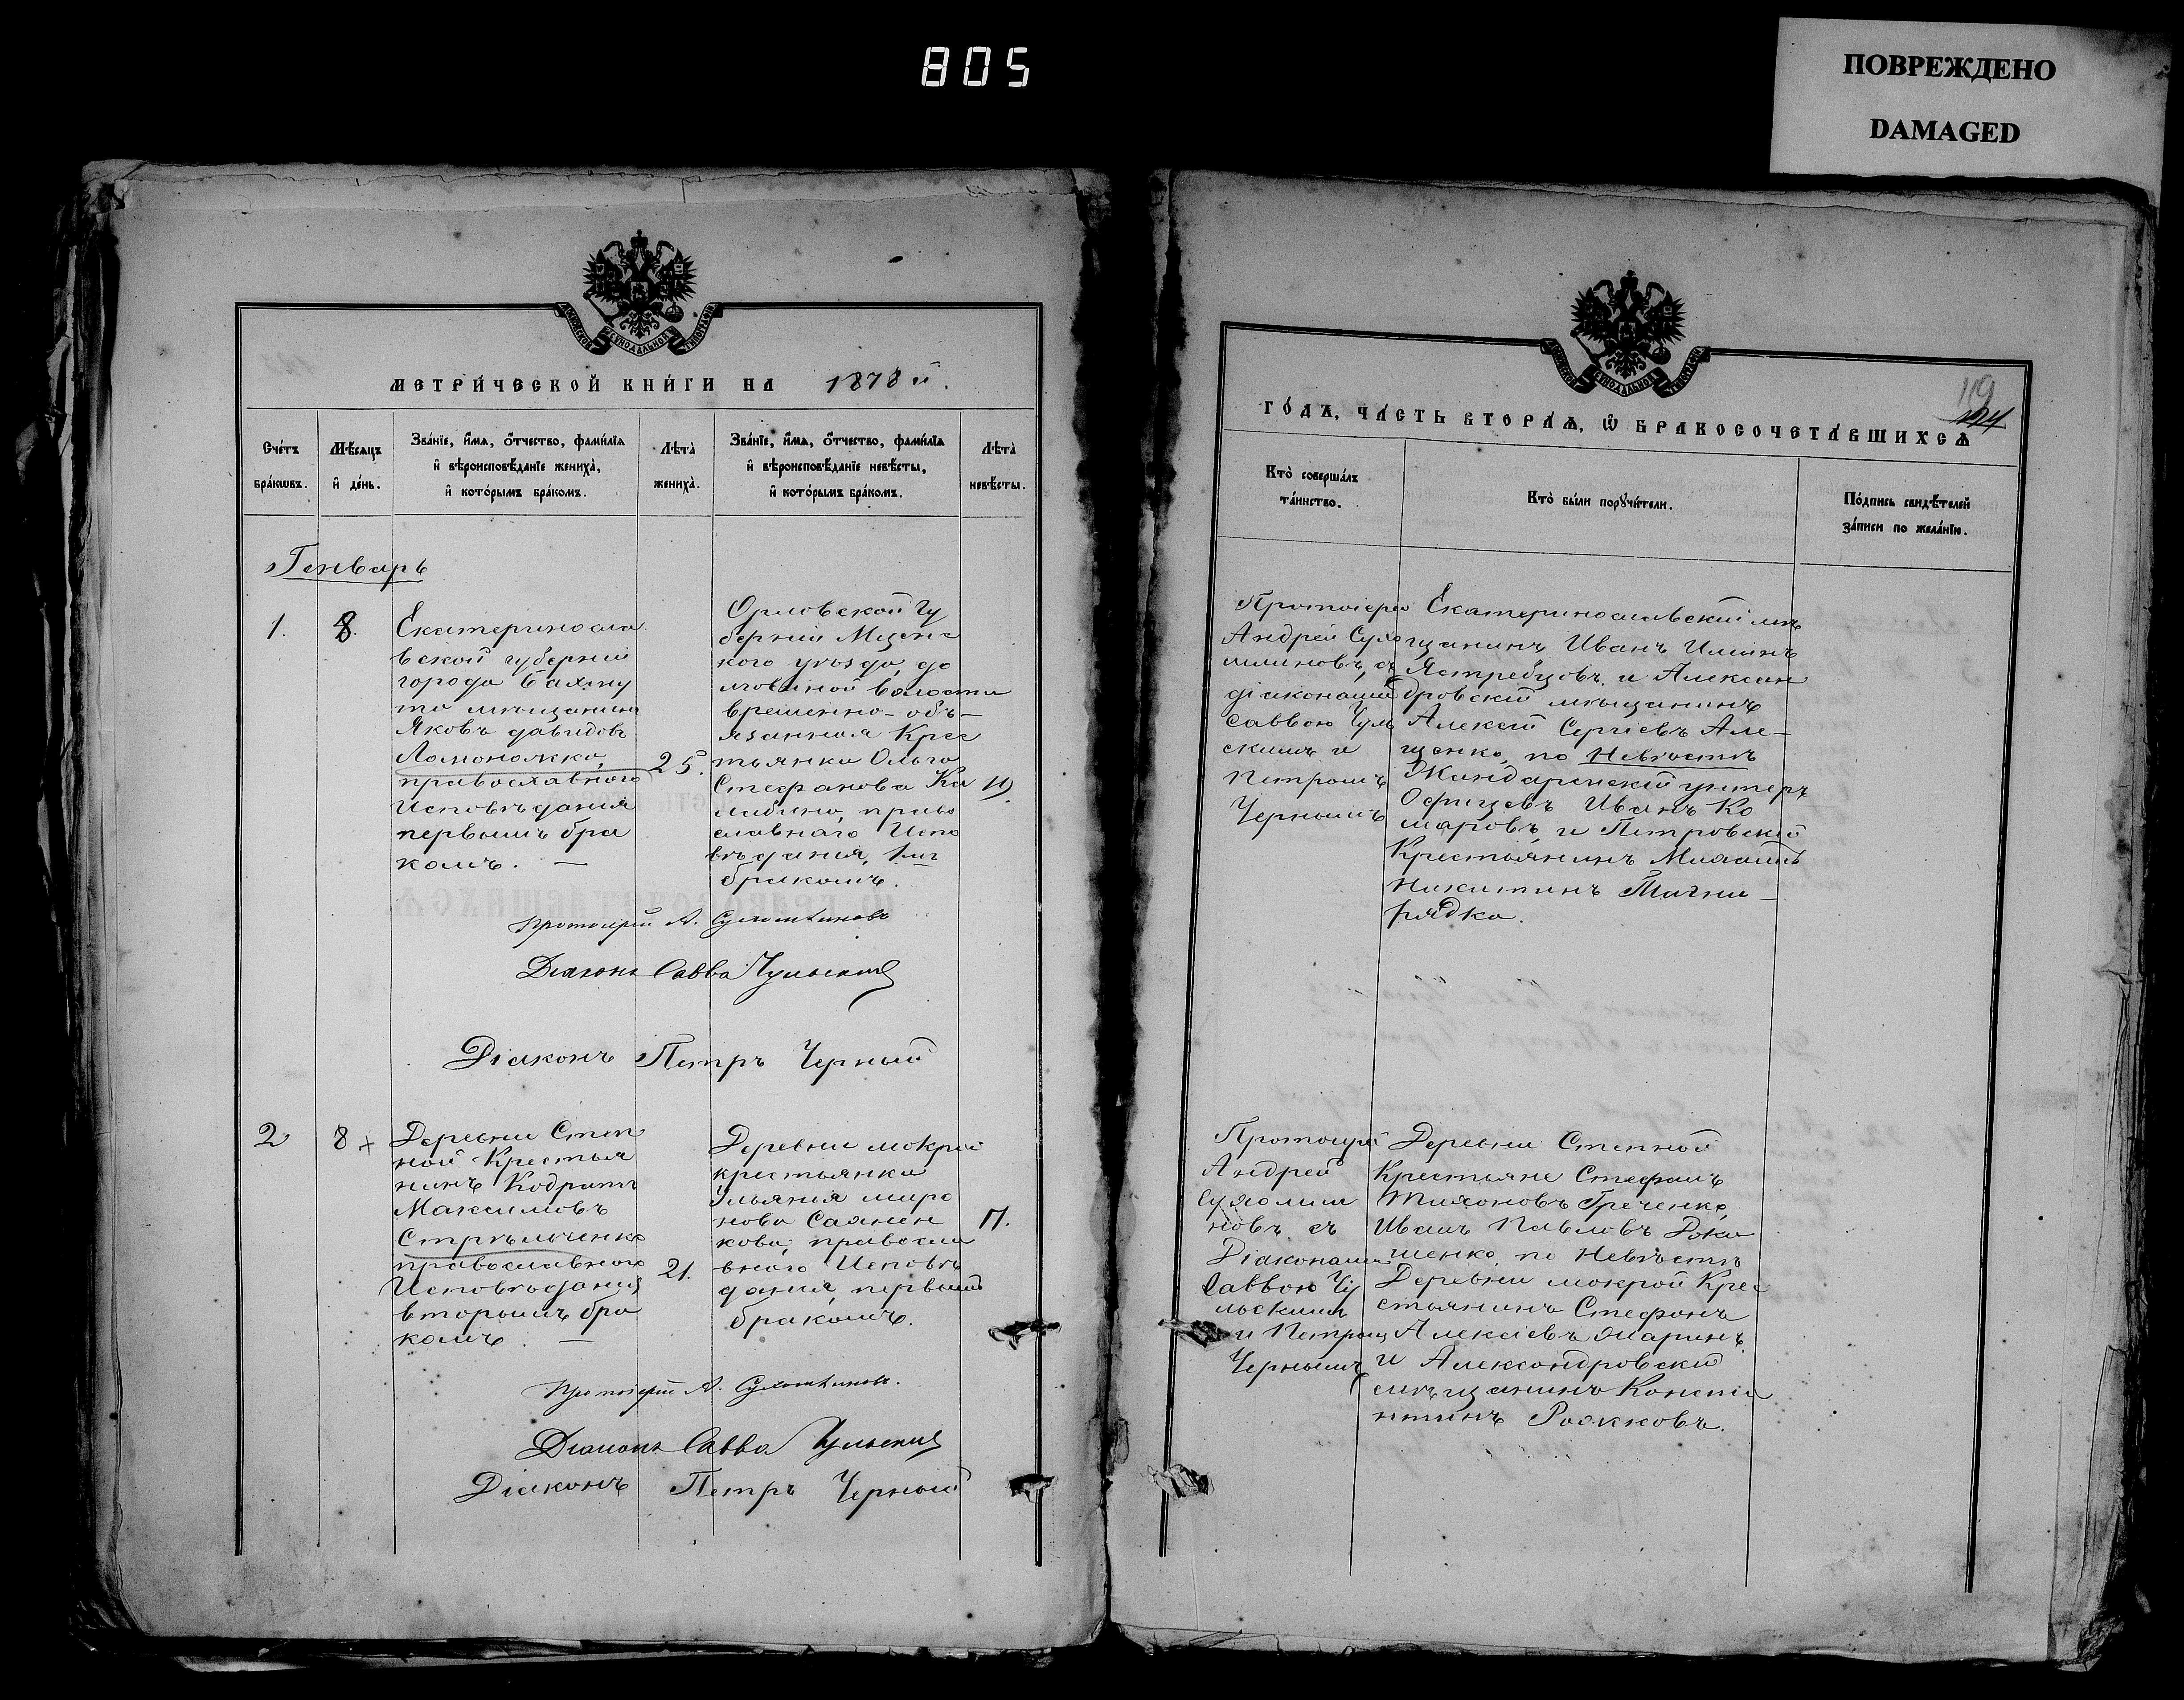 805
ПОВРЕЖДЕНО
DAMAGED
МОСКОВСКОЙ СѴНОДАЛЬНОЙ ТИПОГРАФІИ
МЕТРИ́ЧЕСКОЙ КНИ́ГИ НА 1878 й.
Сче́тъ бра́кѡвъ.
Мѣ́сяцъ и҆ де́нь.
Зва́нїе, и҆́мѧ, ѻ҆́тчество, фами́лїѧ
и҆ вѣроисповѣ́данїе жениха̀,
и҆ кото́рымъ бра́комъ.
Лѣта̀ жениха̀.
Зва́нїе, и҆́мѧ, ѻ҆́тчество, фами́лїѧ
и҆ вѣроисповѣ́данїе невѣ́сты,
и҆ кото́рымъ бра́комъ.
Лѣта̀ невѣ́сты.
Генварь
1.
8.
Екатериносла
вской губерніи
города Бахму
та мѣщанинъ
Яковъ Давидовъ
Ломоножко,
православнаго
Исповѣданія
первымъ бра
комъ. —
25.
Орловской Гу
берніи Мценс
кого уѣзда, до
временно-обя-
занная Крес
тьянка Ольга
Стефанова Ка
православнаго Испо
вѣданія, 1мъ
бракомъ.
19.
Протоіерей А. Сухомлиновъ
Діаконъ Савва Чульскій
Діаконъ Петръ Черный
2
8
Деревни Степ
ной Крестья
нинъ Кодратъ
Максимовъ
Стрѣльченко
православнаго
Исповѣданія
вторымъ бра
комъ. —
21.
Деревни мокрой
крестьянка
Ульянія миро
нова Саянен
кова, правосла
внаго Исповѣ
данія, первымъ
бракомъ.
17.
Протоіерей А. Сухомлиновъ.
Діаконъ Савва Чульскій
Діаконъ Петръ Черный
МОСКОВСКОЙ СѴНОДАЛЬНОЙ ТИПОГРАФІИ
119
ГО́ДА, ЧА́СТЬ ВТОРА́Ѧ, Ѽ БРАКОСОЧЕТА́ВШИХСѦ
Кто̀ соверша́лъ
та́инство.
Кто̀ бы́ли порꙋчи́тели.
По́дпись свидѣ́телей
за́писи по жела́нїю.
Протоіерей
Андрей Сухо
млиновъ, съ
діаконами
Саввою Чуль
скимъ и
Петромъ
Чернымъ
Екатеринославскій мѣ
щанинъ Иванъ Ильинъ
Ястребцовъ, и Алексан
дровскій мѣщанинъ
Алексѣй Сергіевъ Але-
щенко, по Невѣстѣ
Жандармскій унтеръ
Офицеръ Иванъ Ко
маровъ, и Петровскій
Крестьянинъ
Никитинъ
рядка.
Протоіерей
Андрей
Сухомли
новъ съ
Діаконами
Саввою Чу
льскимъ
и Петромъ
Чернымъ
Деревни Степной
Крестьяне Стефанъ
Тихоновъ Греченко,
Иванъ Павловъ Дока
шенко, по Невѣстѣ
Деревни мокрой Кре
стьянинъ Стефанъ
Алексіевъ Маринъ,
и Александровскій
мѣщанинъ Конста
нтинъ